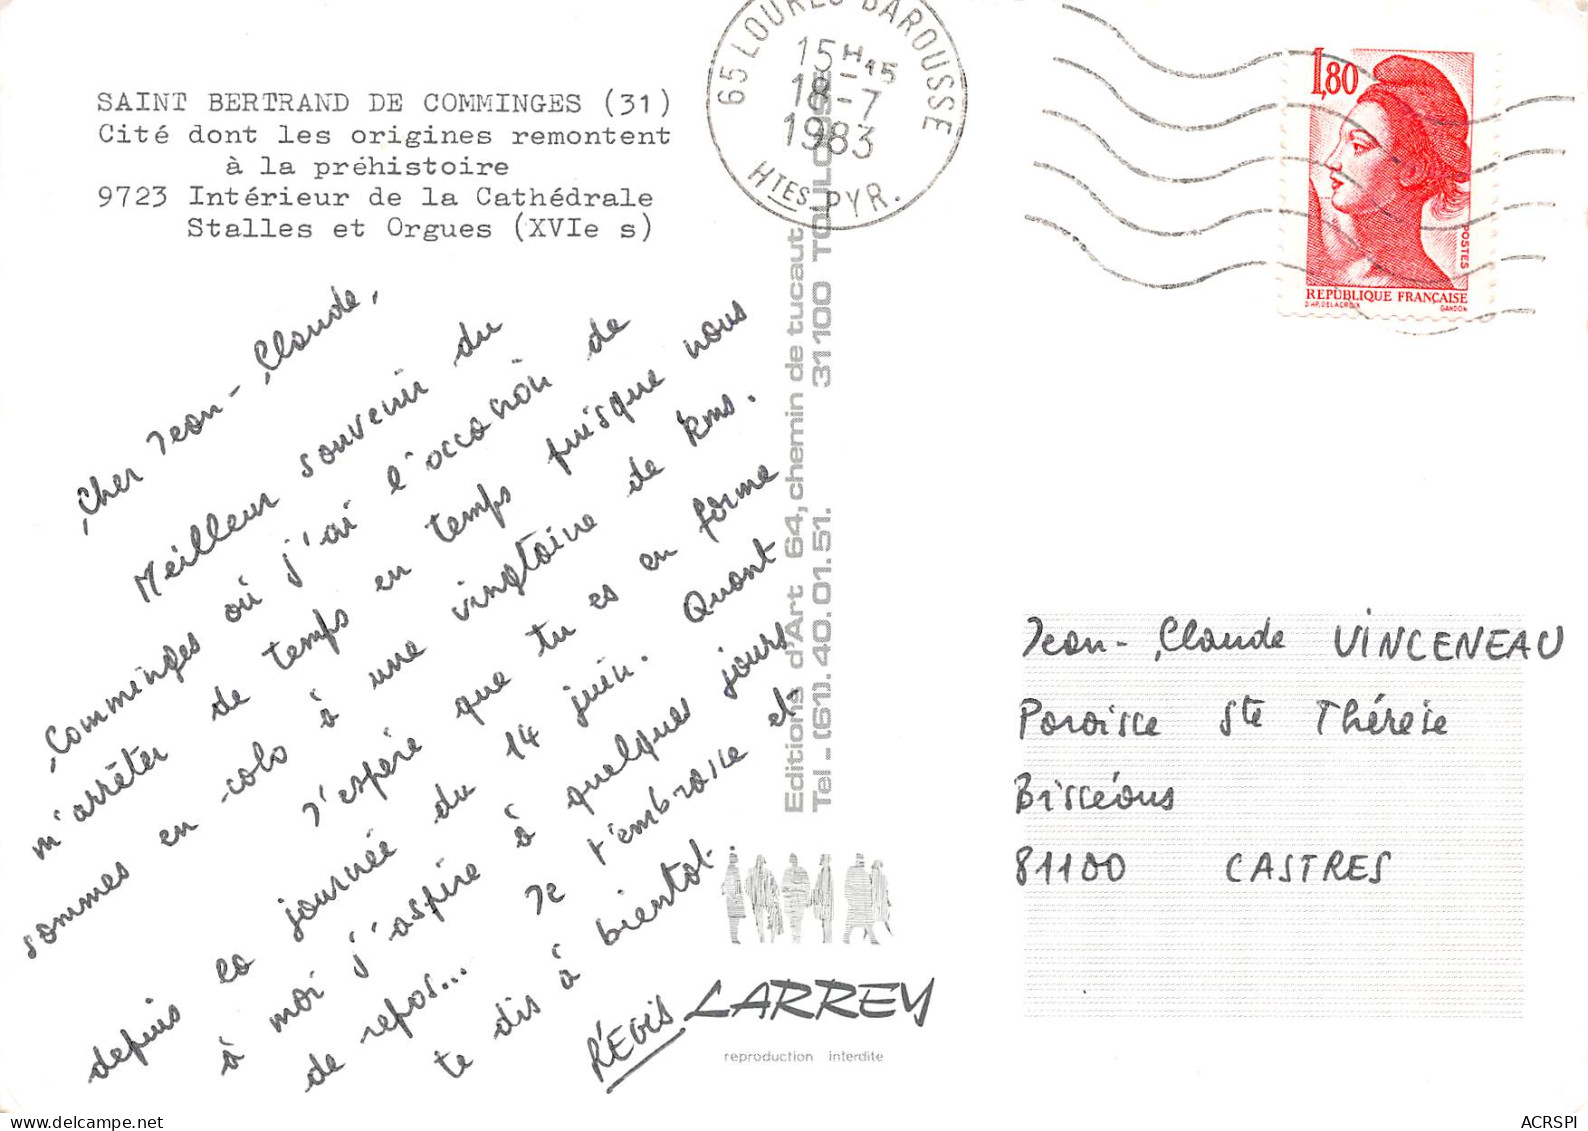 SAINT BERTRAND DE COMMINGES (31)
Cité dont les origines remontent
à la préhistoire
9723 Intérieur de la Cathédrale
Stalles et Orgues (XVIe s)
65 LOURES BAROUSSE
15H45
18-7
1983
HTES PYR.
1,80
POSTES
REPUBLIQUE FRANÇAISE
D'AP. DELACROIX
GANDON
Cher Jean-Claude,
Meilleur souvenir du
Comminges où j'ai l'occasion de
m'arrêter de temps en temps puisque nous
sommes en colo à une vingtaine de kms.
J'espère que tu es en forme
depuis la journée du 14 juin. Quant
à moi j'aspire à quelques jours
de repos... Je t'embrasse et
te dis à bientôt.
RÉGIS
Editions d'Art 64, chemin de tucaut
Tel - (61). 40.01.51. 31100 TOULOUSE
LARREY
reproduction interdite
Jean-Claude VINCENEAU
Paroisse Ste Thérèse
Bisséous
81100 CASTRES
ACRSPI